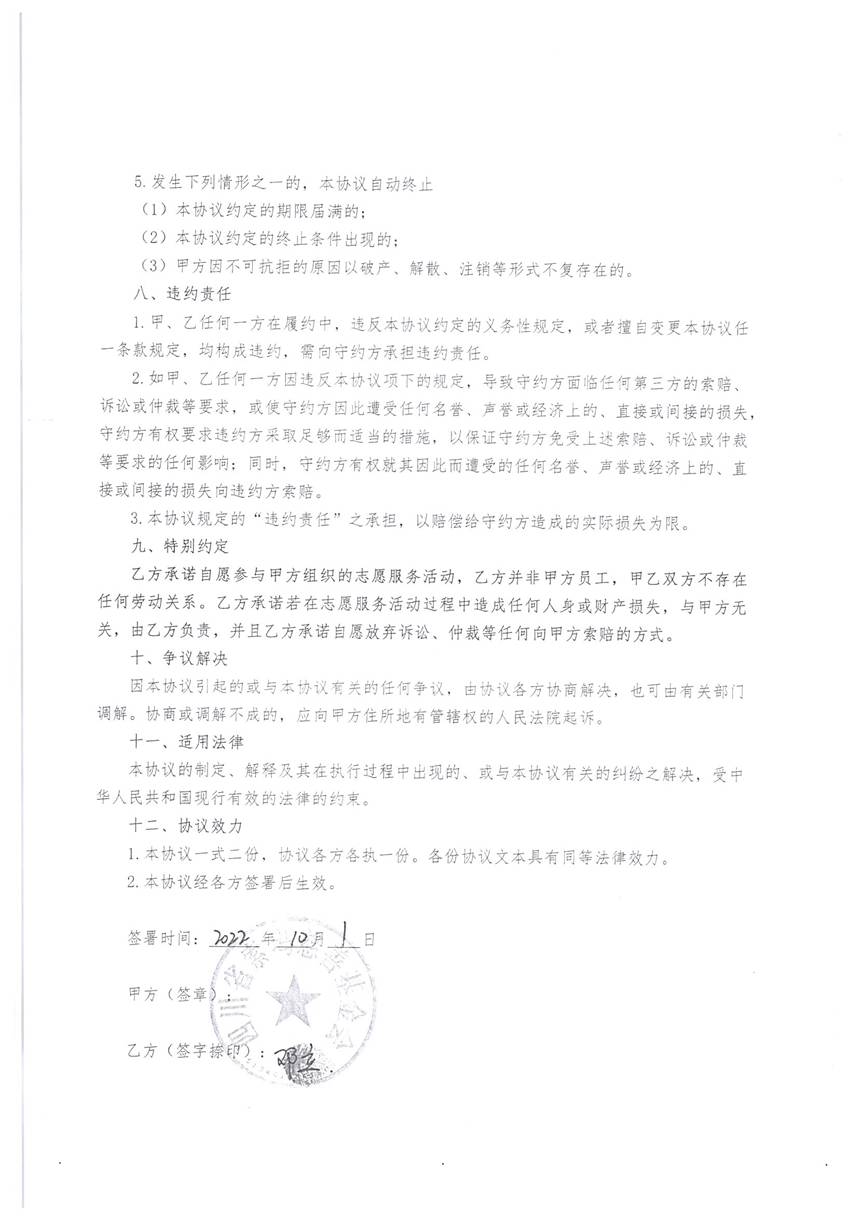 5.发生下列情形之一的，本协议自动终止
（1）本协议约定的期限届满的；
（2）本协议约定的终止条件出现的；
（3）甲方因不可抗拒的原因以破产、解散、注销等形式不复存在的。
八、违约责任
1.甲、乙任何一方在履约中，违反本协议约定的义务性规定，或者擅自变更本协议任
一条款规定，均构成违约，需向守约方承担违约责任。
2.如甲、乙任何一方因违反本协议项下的规定，导致守约方面临任何第三方的索赔、
诉讼或仲裁等要求，或使守约方因此遭受任何名誉、声誉或经济上的、直接或间接的损失，
守约方有权要求违约方采取足够而适当的措施，以保证守约方免受上述索赔、诉讼或仲裁
等要求的任何影响；同时，守约方有权就其因此而遭受的任何名誉、声誉或经济上的、直
接或间接的损失向违约方索赔。
3.本协议规定的“违约责任”之承担，以赔偿给守约方造成的实际损失为限。
九、特别约定
乙方承诺自愿参与甲方组织的志愿服务活动，乙方并非甲方员工，甲乙双方不存在
任何劳动关系。乙方承诺若在志愿服务活动过程中造成任何人身或财产损失，与甲方无
关，由乙方负责，并且乙方承诺自愿放弃诉讼、仲裁等任何向甲方索赔的方式。
十、争议解决
因本协议引起的或与本协议有关的任何争议，由协议各方协商解决，也可由有关部门
调解。协商或调解不成的，应向甲方住所地有管辖权的人民法院起诉。
十一、适用法律
本协议的制定、解释及其在执行过程中出现的、或与本协议有关的纠纷之解决，受中
华人民共和国现行有效的法律的约束。
十二、协议效力
1.本协议一式二份，协议各方各执一份。各份协议文本具有同等法律效力。
2.本协议经各方签署后生效。
签署时间：2022年10月1日
甲方（签章）：
四川省慈善基金会
乙方（签字捺印）：邓立